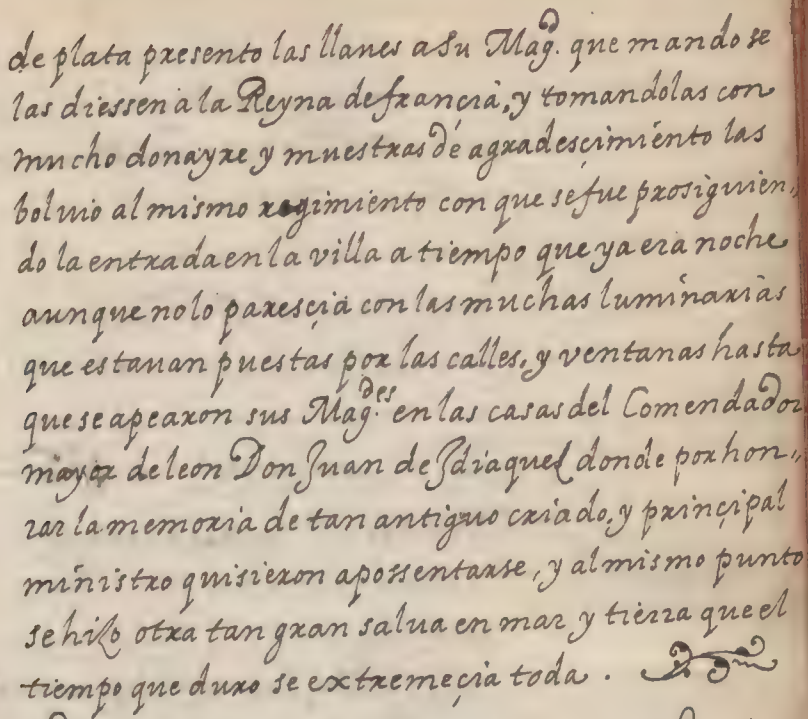 de plata presento las llaves a Su Mag.d que mando se
las diessen a la Reyna de françia, y tomandolas con
mucho donayre y muestras de agradesçimiento las
boluio al mismo regimiento con que se fue prosiguien,,
do la entrada en la villa a tiempo que ya era noche
aunque no lo paresçia con las muchas luminarias
que estauan puestas por las calles, y ventanas hasta
que se apearon sus Mag.des en las casas del Comendador
mayor de leon Don Juan de Idiaquez donde por hon,,
rar la memoria de tan antiguo criado, y prinçipal
ministro quisieron apossentarse, y al mismo punto
se hizo otra tan gran salua en mar y tierra que el
tiempo que duro se extremeçia toda .